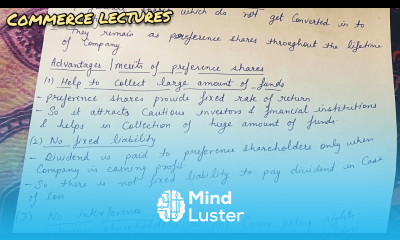 COMMERCE LECTURES
which do not get converted in to
- They remain as preference shares throughout the lifetime
of Company
Advantages / merits of preference shares
(1) Help to collect large amount of funds
- preference shares provide fixed rate of return
- So it attracts Cautious investors & financial institutions
& helps in Collection of huge amount of funds.
(2) No fixed liability
- Dividend is paid to preference shareholders only when
Company is earning profit
- So there is not fixed liability to pay dividend in Case
of loss
(3) No interference
Mind
Luster